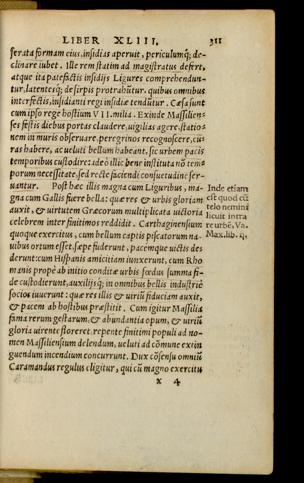 LIBER XLIII. 311
serata formam eius, insidias aperuit, periculumq́; de-
clinare iubet. Ille rem statim ad magistratus defert,
atque ita patefactis insidijs Ligures comprehendun-
tur, latentesq́; de sirpis protrahūtur. quibus omnibus
interfectis, insidianti regi insidiæ tendūtur. Cæsa sunt
cum ipso rege hostium VII. milia. Exinde Massilien-
ses festis diebus portas claudere, uigilias agere, statio-
nem in muris obseruare, peregrinos recognoscere, cu-
ras habere, ac ueluti bellum habeant, sic urbem pacis
temporibus custodire: ideò illic bene instituta nō tem-
porum necessitate, sed recte faciendi consuetudine ser-
uantur. Post hæc illis magna cum Liguribus, ma-
gna cum Gallis fuere bella: quæ res & urbis gloriam
auxit, & uirtutem Græcorum multiplicata uictoria
celebrem inter finitimos reddidit. Carthaginensium
quoque exercitus, cum bellum captis piscatorum na-
uibus ortum esset, sæpe fuderunt, pacemque uictis de-
derunt: cum Hispanis amicitiam iunxerunt, cum Rho
manis propè ab initio conditæ urbis fœdus summa fi-
de custodierunt, auxilijsq́; in omnibus bellis industriè
socios iuuerunt: quæ res illis & uiriū fiduciam auxit,
& pacem ab hostibus præstitit. Cum igitur Massilia
fama rerum gestarum, & abundantia opum, & uiriū
gloria uirente floreret, repente finitimi populi ad no-
men Massiliensium delendum, ueluti ad cōmune extin
guendum incendium concurrunt. Dux cōsensu omniū
Caramandus regulus eligitur, qui cū magno exercitu
x 4
Inde etiam
est quod cū
telo nemini
licuit intra
re urbē, Va.
Max. lib. ij.